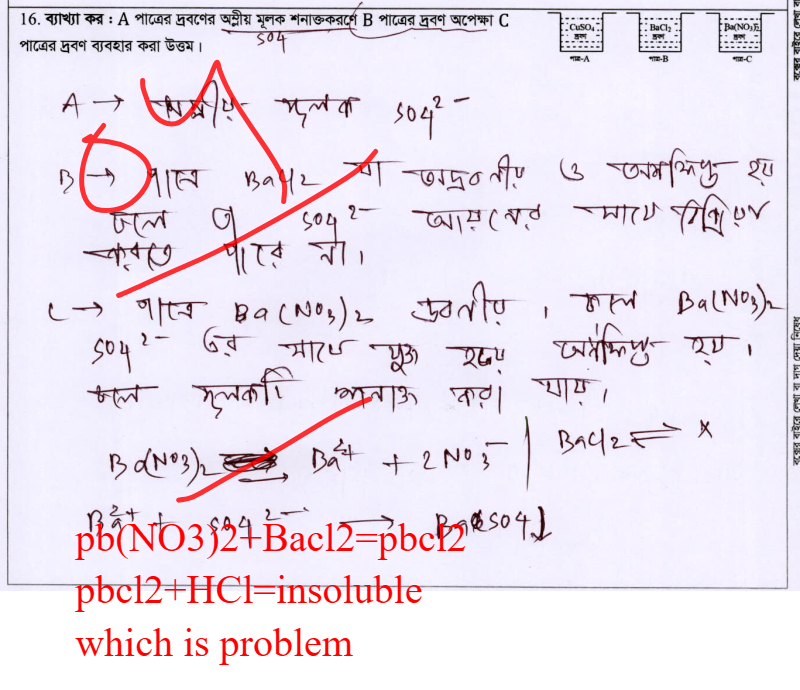 16. ব্যাখ্যা কর : A পাত্রের দ্রবণের অম্লীয় মূলক শনাক্তকরণে B পাত্রের দ্রবণ অপেক্ষা C
পাত্রের দ্রবণ ব্যবহার করা উত্তম।
SO4
CuSO₄ দ্রবণ
পাত্র-A
BaCl₂ দ্রবণ
পাত্র-B
Ba(NO₃)₂ দ্রবণ
পাত্র-C
A → অম্লীয় মূলক SO4²⁻
B → পাত্রে BaCl2 যা অদ্রবনীয় ও অধঃক্ষিপ্ত হয়
ফলে তা SO4²⁻ আয়নের সাথে বিক্রিয়া
করতে পারে না।
C → পাত্রে Ba(NO3)2 দ্রবনীয়, ফলে Ba(NO3)2
SO4²⁻ এর সাথে যুক্ত হয়ে অধঃক্ষিপ্ত হয়।
ফলে মূলকটি শনাক্ত করা যায়।
Ba(NO3)2 → Ba²⁺ + 2NO3⁻ | BaCl2 ⇌ ×
Ba²⁺ + SO4²⁻ → BaSO4↓
pb(NO3)2+Bacl2=pbcl2
pbcl2+HCl=insoluble
which is problem
বক্সের বাইরে লেখা বা দাগ দেয়া নিষেধ